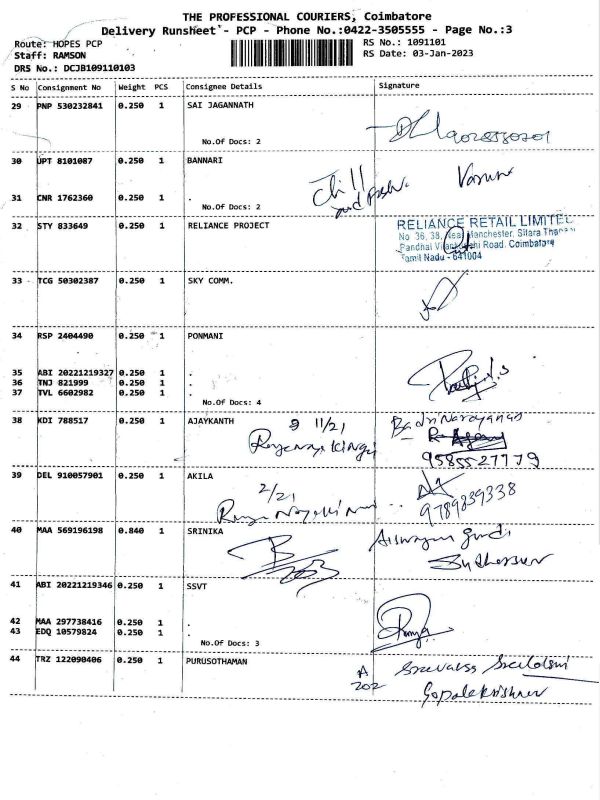 THE PROFESSIONAL COURIERS, Coimbatore
Delivery Runsheet - PCP - Phone No.:0422-3505555 - Page No.:3
Route: HOPES PCP
RS No.: 1091101
Staff: RAMSON
RS Date: 03-Jan-2023
DRS No.: DCJB109110103
S No Consignment No Weight PCS Consignee Details Signature
29 PNP 530232841 0.250 1 SAI JAGANNATH
No.Of Docs: 2
30 UPT 8101087 0.250 1 BANNARI
31 CNR 1762360 0.250 1 .
No.Of Docs: 2
32 STY 833649 0.250 1 RELIANCE PROJECT
RELIANCE RETAIL LIMITED
No 36, 38, Near Manchester, Sitara
Road, Coimbatore
Tamil Nadu - 641004
33 TCG 50302387 0.250 1 SKY COMM.
34 RSP 2404490 0.250 1 PONMANI
35 ABI 20221219327 0.250 1 .
36 TNJ 821999 0.250 1 .
37 TVL 6602982 0.250 1 .
No.Of Docs: 4
38 KDI 788517 0.250 1 AJAYKANTH
11/21
Badri Narayanan
9585527779
39 DEL 910057901 0.250 1 AKILA
2/21
9789839338
40 MAA 569196198 0.840 1 SRINIKA
41 ABI 20221219346 0.250 1 SSVT
42 MAA 297738416 0.250 1 .
43 EDQ 10579824 0.250 1 .
No.Of Docs: 3
Ramya
44 TRZ 122090406 0.250 1 PURUSOTHAMAN
A
202
Gopalakrishnan